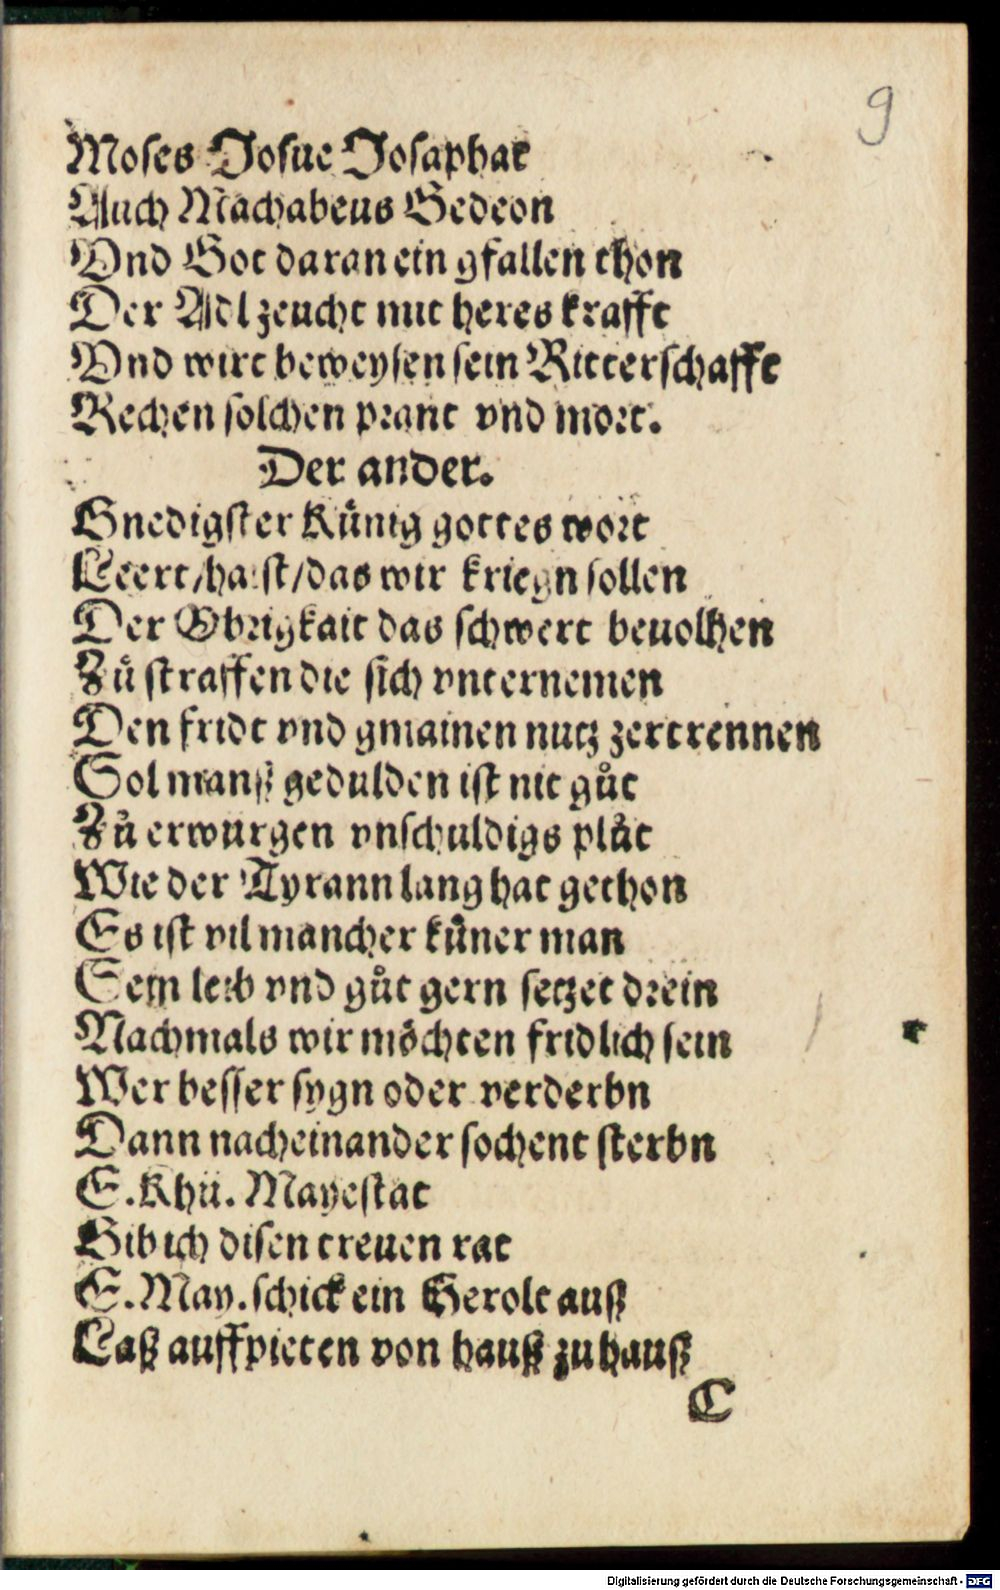 9
Moses Josue Josaphat
Auch Machabeus Gedeon
Vnd Got daran ein gfallen thon
Der Adl zeucht mit heres krafft
Vnd wirt beweysen sein Ritterschafft
Rechen solchen prant vnd mort.
Der ander.
Gnedigster Künig gottes wort
Leert/haist/das wir kriegn sollen
Der Obrigkait das schwert beuolhen
Zů straffen die sich vnternemen
Den fridt vnd gmainen nutz zertrennen
Sol manß gedulden ist nit gůt
Zů erwurgen vnschuldigs plůt
Wie der Tyrann lang hat gethon
Es ist vil mancher küner man
Sein leib vnd gůt gern setzet drein
Nachmals wir möchten fridlich sein
Wer besser sygn oder verderbn
Dann nacheinander sochent sterbn
E.Khü. Mayestat
Gib ich disen treuen rat
E.May.schick ein Herolt auß
Laß auffpieten von hauß zu hauß
C
Digitalisierung gefördert durch die Deutsche Forschungsgemeinschaft - DFG